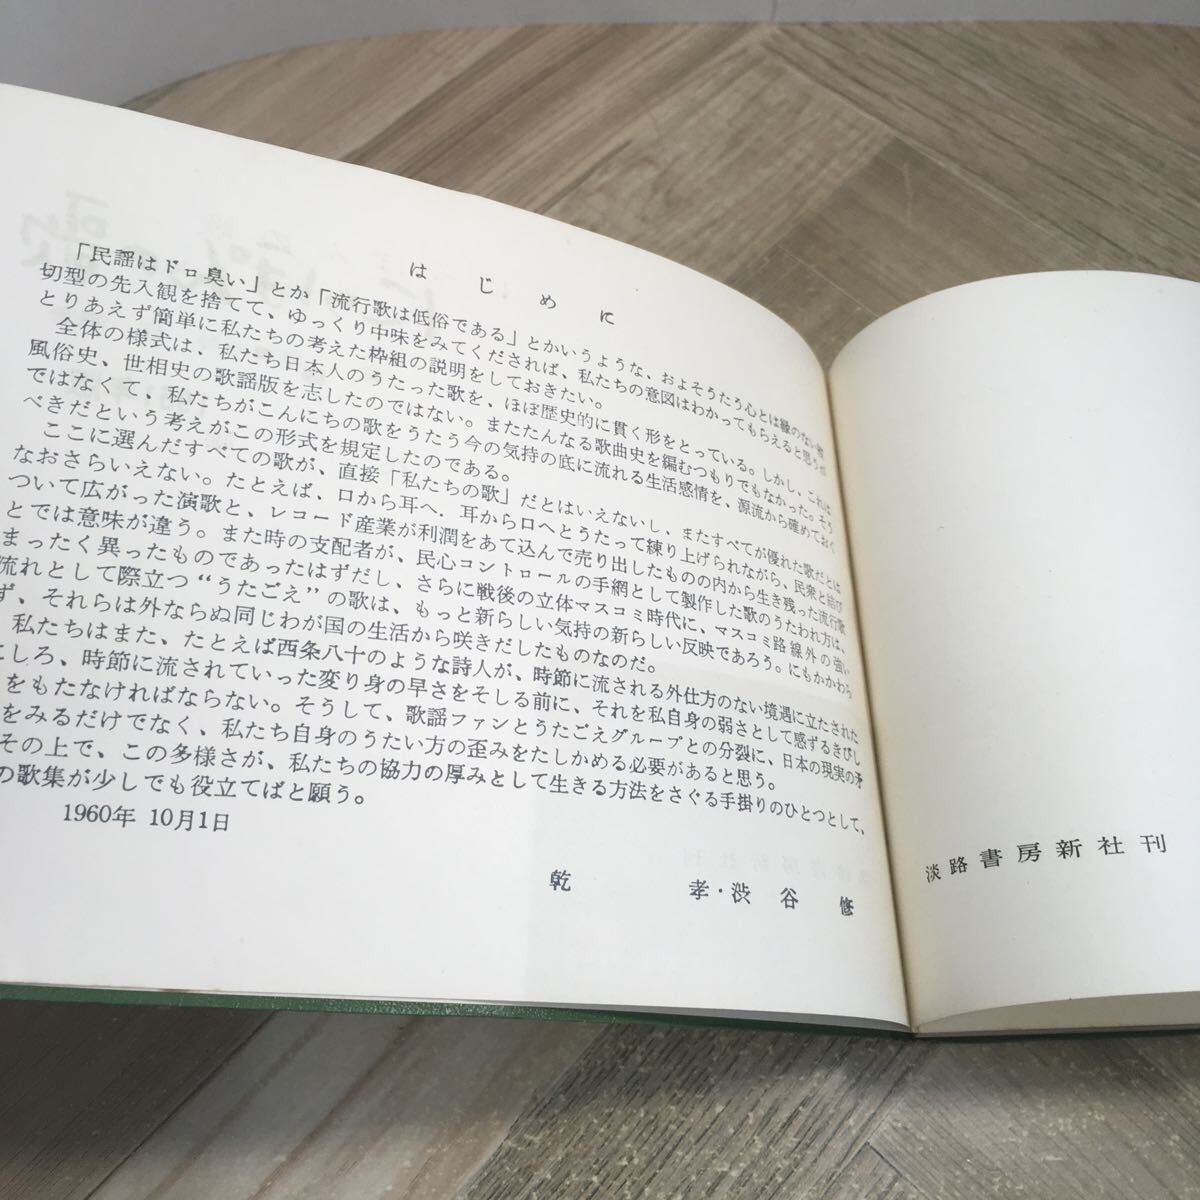 はじめに
「民謡はドロ臭い」とか「流行歌は低俗である」とかいうような、およそうたう心とは縁のない
切型の先入観を捨てて、ゆっくり中味をみてくだされば、私たちの意図はわかってもらえると思うが
とりあえず簡単に私たちの考えた枠組の説明をしておきたい。
全体の様式は、私たち日本人のうたった歌を、ほぼ歴史的に貫く形をとっている。しかし、これは
風俗史、世相史の歌謡版を志したのではない。またたんなる歌曲史を編むつもりでもなかった。そう
ではなくて、私たちがこんにちの歌をうたう今の気持の底に流れる生活感情を、源流から確めておく
べきだという考えがこの形式を規定したのである。
ここに選んだすべての歌が、直接「私たちの歌」だとはいえないし、またすべてが優れた歌だとは
なおさらいえない。たとえば、口から耳へ、耳から口へとうたって練り上げられながら、民衆と結び
ついて広がった演歌と、レコード産業が利潤をあて込んで売り出したものの内から生き残った流行歌
とでは意味が違う。また時の支配者が、民心コントロールの手綱として製作した歌のうたわれ方は、
まったく異ったものであったはずだし、さらに戦後の立体マスコミ時代に、マスコミ路線外の強い
流れとして際立つ“うたごえ”の歌は、もっと新らしい気持の新らしい反映であろう。にもかかわら
ず、それらは外ならぬ同じわが国の生活から咲きだしたものなのだ。
私たちはまた、たとえば西条八十のような詩人が、時節に流される外仕方のない境遇に立たされた
にしろ、時節に流されていった変り身の早さをそしる前に、それを私自身の弱さとして感ずるきびし
をもたなければならない。そうして、歌謡ファンとうたごえグループとの分裂に、日本の現実の矛
をみるだけでなく、私たち自身のうたい方の歪みをたしかめる必要があると思う。
その上で、この多様さが、私たちの協力の厚みとして生きる方法をさぐる手掛りのひとつとして、
の歌集が少しでも役立てばと願う。
1960年 10月1日
乾 孝・渋谷 修
淡路書房新社刊